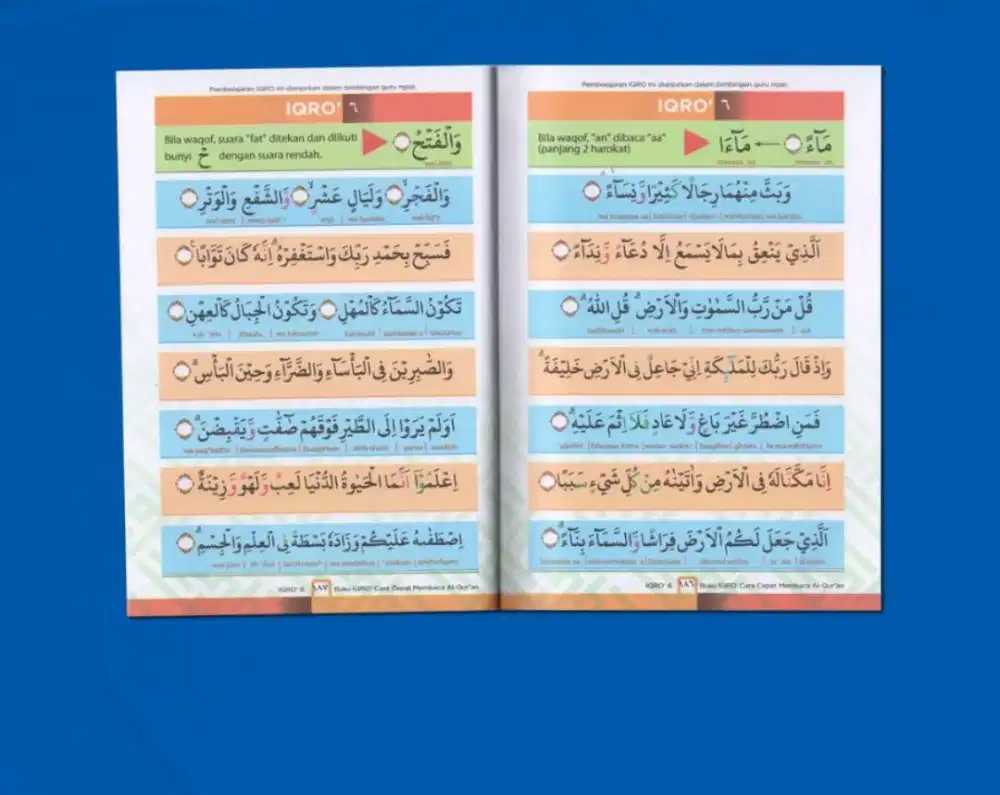 Pembelajaran IQRO ini dianjurkan dalam bimbingan guru ngaji.
IQRO' ٦
Bila waqof, "an" dibaca "aa"
(panjang 2 harokat)
مَآءً ← مَآءَا
وَبَثَّ مِنْهُمَا رِجَالًا كَثِيْرًا وَّنِسَآءً ۚ
الَّذِيْ يَنْعِقُ بِمَا لَا يَسْمَعُ اِلَّا دُعَآءً وَّنِدَآءً
قُلْ مَنْ رَّبُّ السَّمٰوٰتِ وَالْاَرْضِ ۗ قُلِ اللّٰهُ ۗ
وَاِذْ قَالَ رَبُّكَ لِلْمَلٰٓئِكَةِ اِنِّيْ جَاعِلٌ فِى الْاَرْضِ خَلِيْفَةً ۗ
فَمَنِ اضْطُرَّ غَيْرَ بَاغٍ وَّلَا عَادٍ فَلَآ اِثْمَ عَلَيْهِ ۗ
اِنَّا مَكَّنَّا لَهٗ فِى الْاَرْضِ وَاٰتَيْنٰهُ مِنْ كُلِّ شَيْءٍ سَبَبًا
الَّذِيْ جَعَلَ لَكُمُ الْاَرْضَ فِرَاشًا وَّالسَّمَآءَ بِنَآءً ۖ
IQRO' 6 ١٨٦ Buku IQRO' Cara Cepat Membaca Al-Qur'an
Pembelajaran IQRO ini dianjurkan dalam bimbingan guru ngaji.
IQRO' ٦
Bila waqof, suara "fat" ditekan dan diikuti
bunyi حْ dengan suara rendah.
وَالْفَتْحُ
وَالْفَجْرِ ۙ وَلَيَالٍ عَشْرٍ ۙ وَّالشَّفْعِ وَالْوَتْرِ ۙ
فَسَبِّحْ بِحَمْدِ رَبِّكَ وَاسْتَغْفِرْهُ ۗ اِنَّهٗ كَانَ تَوَّابًا
تَكُوْنُ السَّمَآءُ كَالْمُهْلِ ۙ وَتَكُوْنُ الْجِبَالُ كَالْعِهْنِ ۙ
وَالصّٰبِرِيْنَ فِى الْبَأْسَآءِ وَالضَّرَّآءِ وَحِيْنَ الْبَأْسِ ۗ
اَوَلَمْ يَرَوْا اِلَى الطَّيْرِ فَوْقَهُمْ صٰٓفّٰتٍ وَّيَقْبِضْنَ ۘ
اِعْلَمُوْٓا اَنَّمَا الْحَيٰوةُ الدُّنْيَا لَعِبٌ وَّلَهْوٌ وَّزِيْنَةٌ
اصْطَفٰىهُ عَلَيْكُمْ وَزَادَهٗ بَسْطَةً فِى الْعِلْمِ وَالْجِسْمِ ۗ
IQRO' 6 ١٨٧ Buku IQRO' Cara Cepat Membaca Al-Qur'an